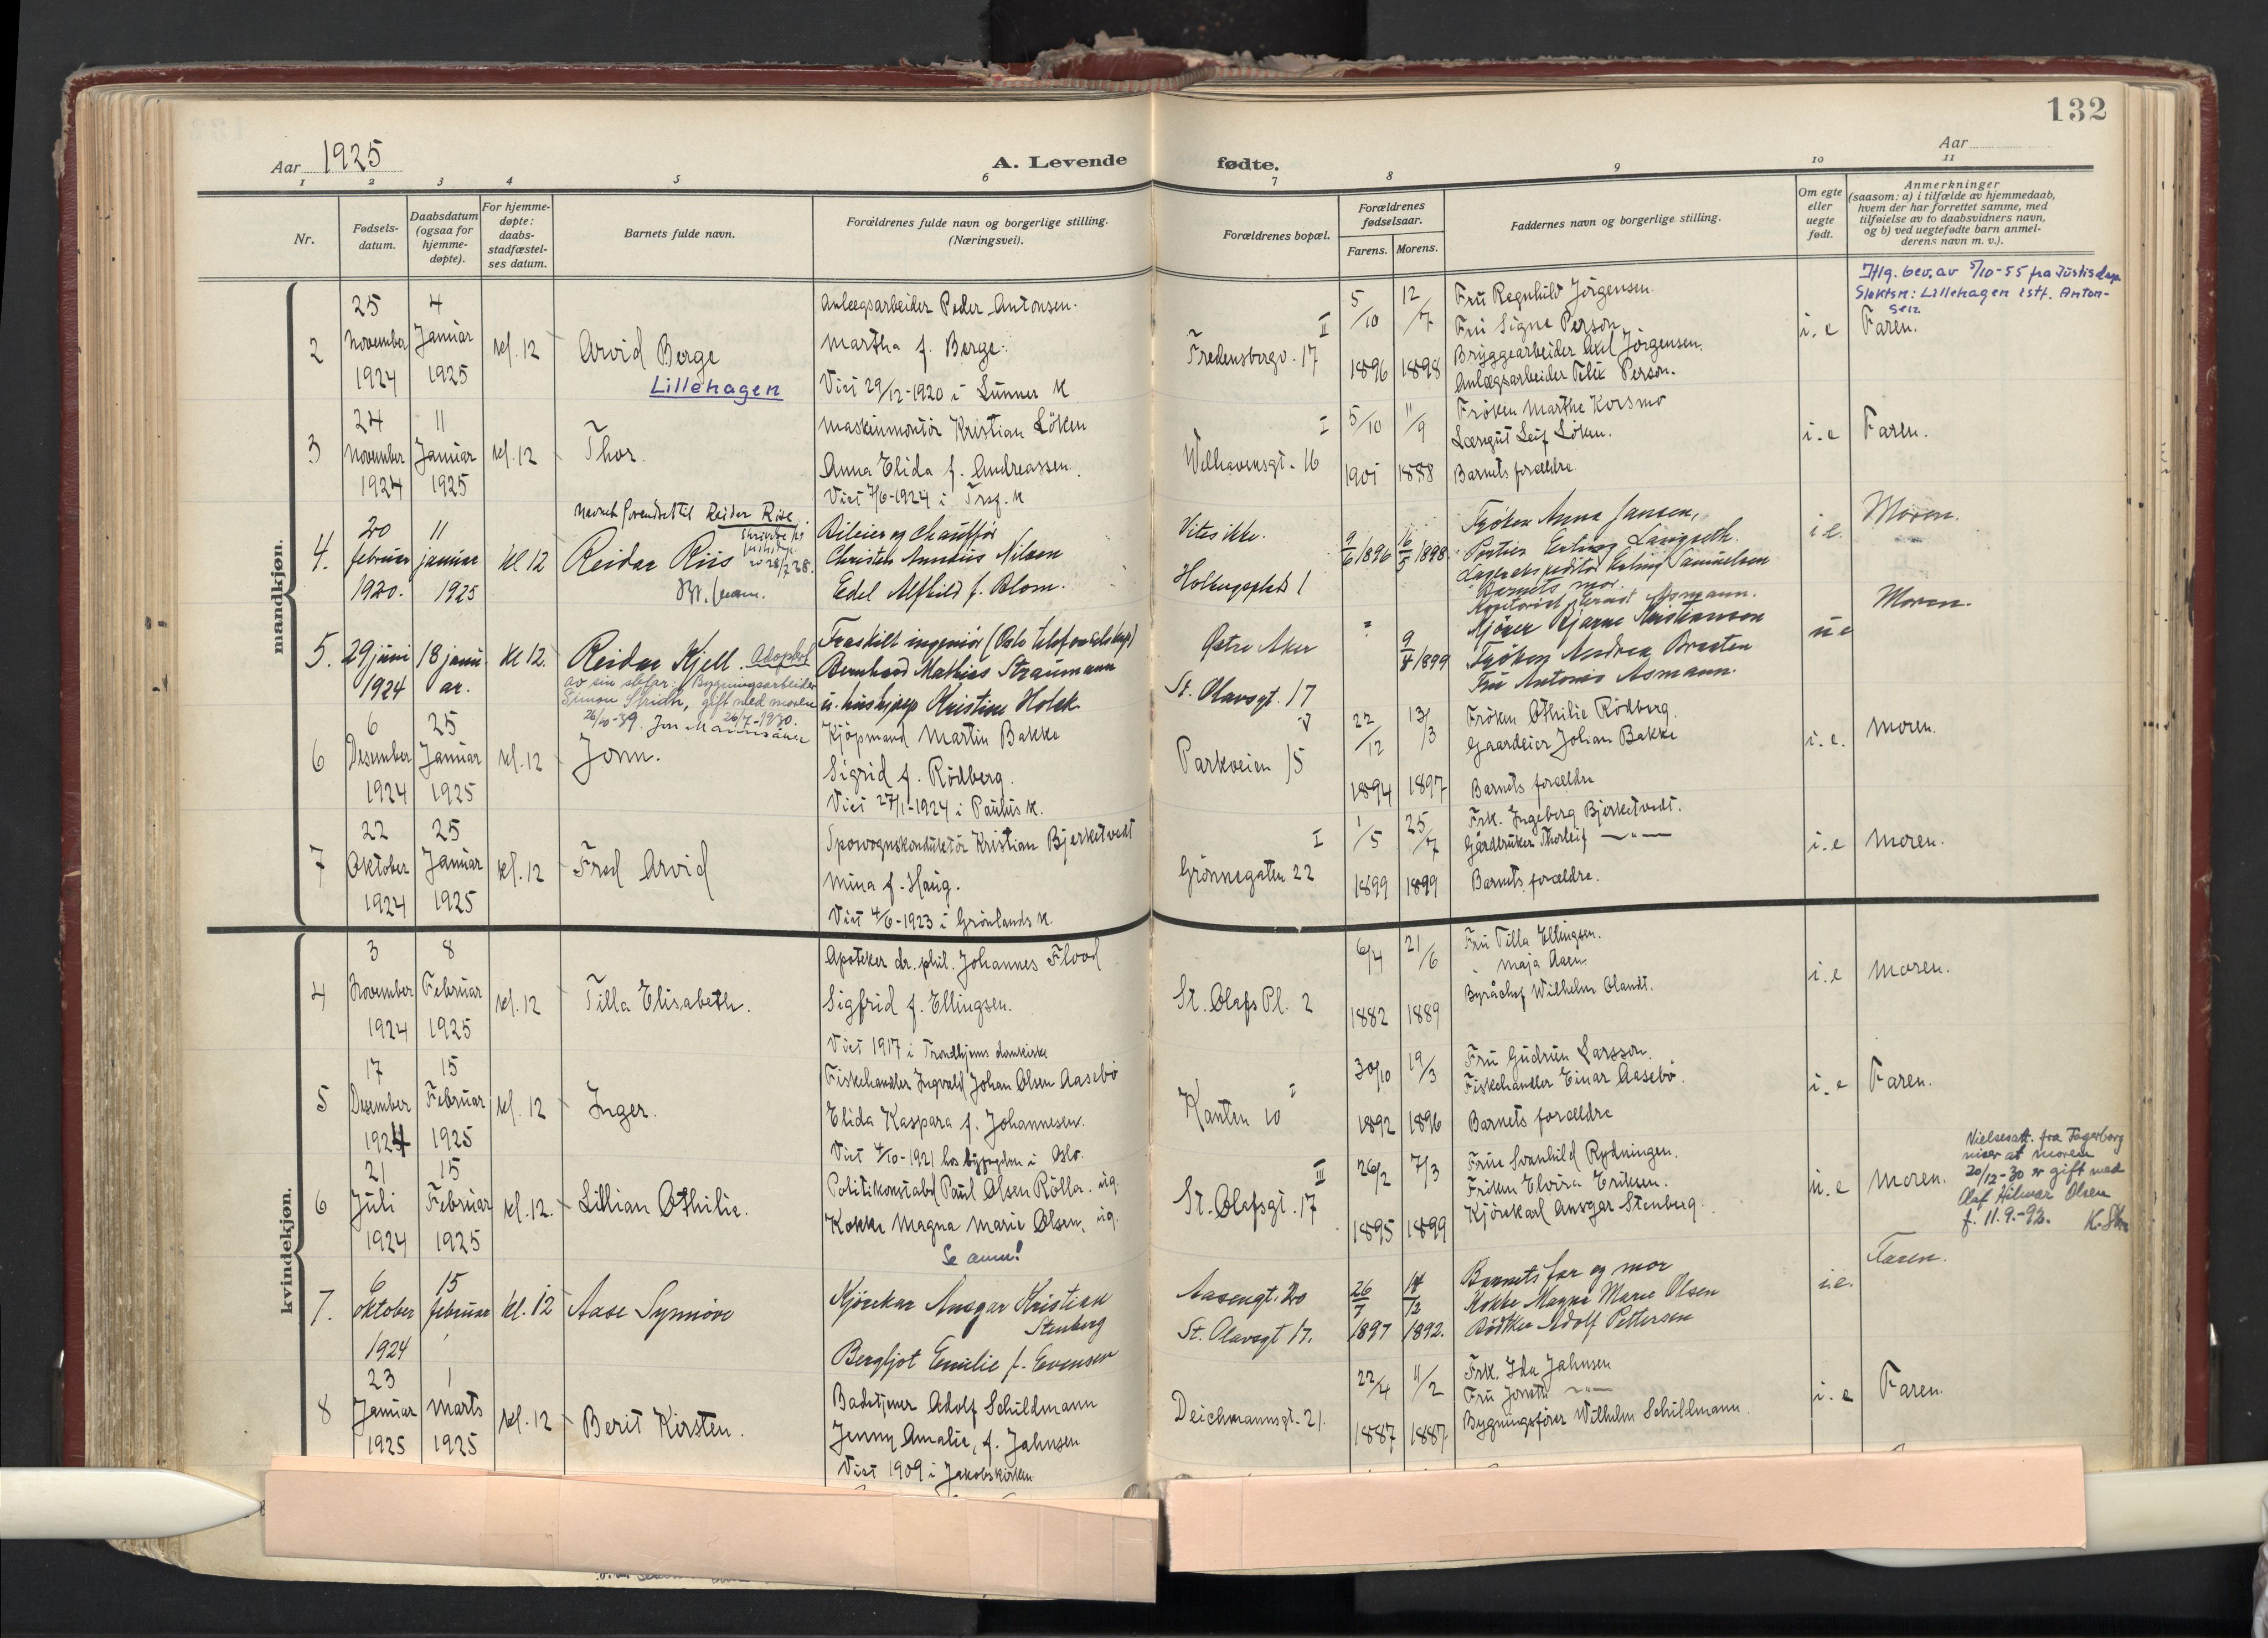 132
Aar 1925
A. Levende fødte.
Aar
1 2 3 4 5 6 7 8 9 10 11
Nr.
Fødsels-
datum.
Daabsdatum
(ogsaa for
hjemme-
døpte).
For hjemme-
døpte:
daabs-
stadfæstel-
ses datum.
Barnets fulde navn.
Forældrenes fulde navn og borgerlige stilling.
(Næringsvei).
Forældrenes bopæl.
Forældrenes
fødselsaar.
Farens. Morens.
Faddernes navn og borgerlige stilling.
Om egte
eller
uegte
født.
Anmerkninger
(saasom: a) i tilfælde av hjemmedaab,
hvem der har forrettet samme, med
tilføielse av to daabsvidners navn,
og b) ved uegtefødte barn anmel-
derens navn m. v.).
mandkjøn.
2
25 November 1924
4 Januar 1925
kl. 12
Arvid Berge
Lillehagen
Anlægsarbeider Peder Antonsen.
Martha f. Berge.
Viet 29/12-1920 i Lunner K
II
Fredensborgv. 17
5/10 1896
12/7 1898
Fru Regnhild Jörgensen.
Fru Signe Person
Bryggearbeider Axel Jörgensen.
Anlægsarbeider Person.
i. e
Ifllg. bev. av 5/10-55 fra Justisdep.
Slektsn: Lillehagen istf. Anton-
sen
Faren.
3
24 November 1924
11 Januar 1925
kl. 12
Thor.
Maskinmontör Kristian Löken
Anna Elida f. Andreassen.
Viet 7/6-1924 i Trsf. K
I
Welhavensgt. 16
5/10 1901
11/9 1888
Fröken Marthe Korsmo
Læregut Leif Löken.
Barnets forældre
i. e
Faren.
4.
20 februar 1920.
11 januar 1925
kl 12
Navnet forandret til Reidar Riise
Reidar Riis
28/7 28.
Bileier og Chauffør
Christen Annæus Nilsen
Edel Alfhild f. Blom.
Vites ikke.
Holbergsplads 1
9/6 1896
16/5 1898
Frøken Anna Jansen,
Portier Erling Langseth.
Lagerekspeditör Erling Samuelsen
Barnets mor.
i e.
Moren.
5.
29 juni 1924
18 januar.
kl 12.
Reidar Kjell. Adoptert
av sin stefar: Bygningsarbeider
Simon Stridth, gift med moren
26/10-39. 26/7-1930.
Fraskilt ingeniør (Oslo Telefonselskap)
Bernhard Mathias Straumann
u. hushjelp Kristine Holek
Østre Aker
St. Olavsgt. 17
?
9/4 1899
Kontorist Ernst Asmann.
Kjører Bjarne Kristiansen
Frøken Andrea Braaten
Fru Antonie Asmann.
u e
Moren.
6
6 Desember 1924
25 Januar 1925
kl. 12
Jonn.
Kjöpmand Martin Bakke
Sigrid f. Rödberg.
Viet 27/1-1924 i Paulus K.
V
Parkveien 15
22/12 1894
13/3 1897
Fröken Othilie Rödberg.
Gaardeier Johan Bakke
Barnets forældre
i. e.
Moren.
7
22 Oktober 1924
25 Januar 1925
kl. 12
Fred Arvid
Sporvognskonduktör Kristian Bjerketvedt
Mina f. Haug.
Viet 4/6-1923 i Grönlands K.
I
Grönnegaten 22
1/5 1899
25/7 1899
Frk. Ingeborg Bjerketvedt.
Gårdbruker Thorleif —"—
Barnets forældre.
i. e
Moren.
kvindekjøn.
4
3 November 1924
8 Februar 1925
kl. 12
Tilla Elisabeth.
Apoteker dr. phil. Johannes Flood
Sigfrid f. Ellingsen.
Viet 1917 i Trondhjems domkirke
St. Olafs Pl. 2
6/4 1882
21/6 1889
Fru Tilla Ellingsen.
" Maja Aasen
Byråchef Wilhelm Olandt.
i. e
Moren.
5
17 Desember 1924
15 Februar 1925
kl. 12
Inger.
Fiskehandler Ingvald Johan Olsen Aasebö
Elida Kaspara f. Johannesen.
Viet 4/10-1921 hos byfogden i Oslo.
I
Kanten 10
30/10 1892
19/3 1896
Fru Gudrun Larsson.
Fiskehandler Einar Aasebö.
Barnets forældre
i. e
Faren.
6
21 Juli 1924
15 Februar 1925
kl. 12.
Lillian Othilie.
Politikonstabel Paul Olsen Rölla. ug.
Kokke Magna Marie Olsen, ug.
Se anm!
III
St. Olafsgt. 17
26/2 1895
7/3 1899
Frue Svanhild Rydningen.
Fröken Elvira Eriksen.
Kjörekarl Ansgar Stenberg.
u. e
Moren.
Vielsesatt. fra Fagerborg
viser at moren
20/12-30 er gift med
Olaf Hilmar Olsen
f. 11.9.-93.
7.
6 oktober 1924
15 februar
kl. 12
Aase Synnöve
Kjörekar Ansgar Kristian
Stenberg
Bergljot Emilie f. Evensen
Aasengt. 20
St. Olavsgt 17.
26/7 1897
14/12 1892.
Barnets far og mor
Kokke Magna Marie Olsen
Bödtker Adolf Pettersen
i e.
Faren.
8
23 Januar 1925
1 Marts 1925
kl. 12
Berit Kirsten.
Badetjener Adolf Schildmann
Jenny Amalie, f. Jahnsen
Viet 1909 i Jakobskirken
Deichmannsgt. 21.
22/4 1887
11/2 1887
Frk. Ida Jahnsen
Fru —"—
Bygningsfører Wilhelm Schildmann.
i. e
Faren.